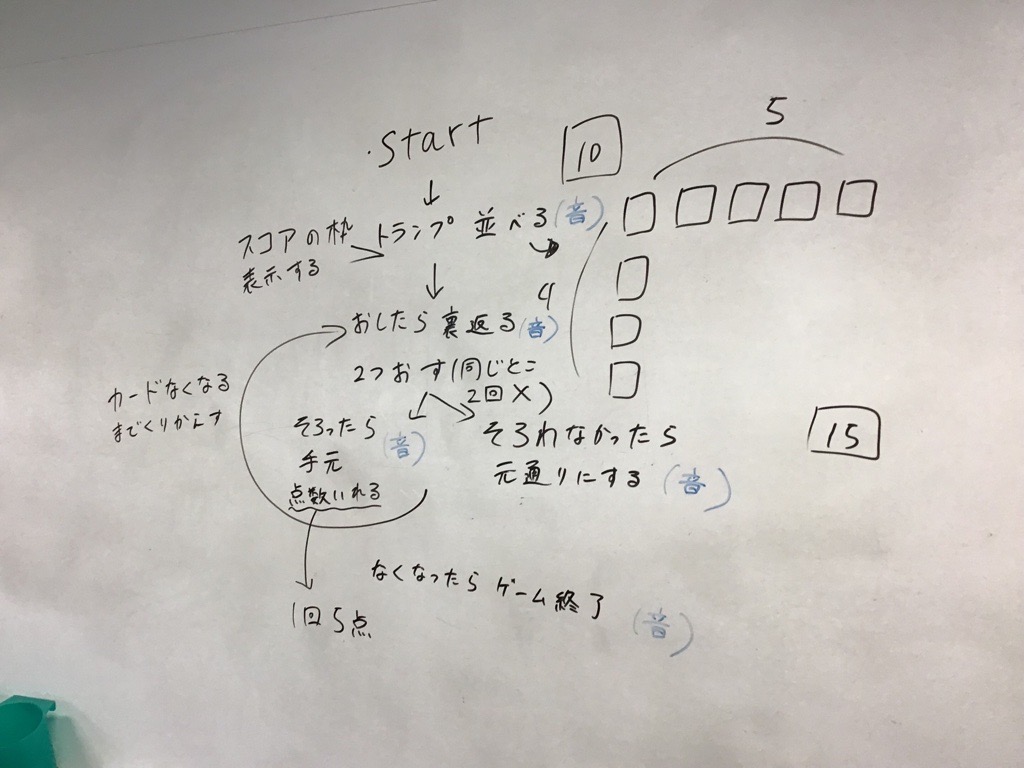 ・start
10
5
スコアの枠
表示する
トランプ 並べる(音)
4
おしたら裏返る(音)
2つおす(同じとこ
2回×)
カードなくなる
までくりかえす
そろったら
(音)
手元
点数いれる
そろわなかったら
元通りにする(音)
15
なくなったらゲーム終了
(音)
1回5点